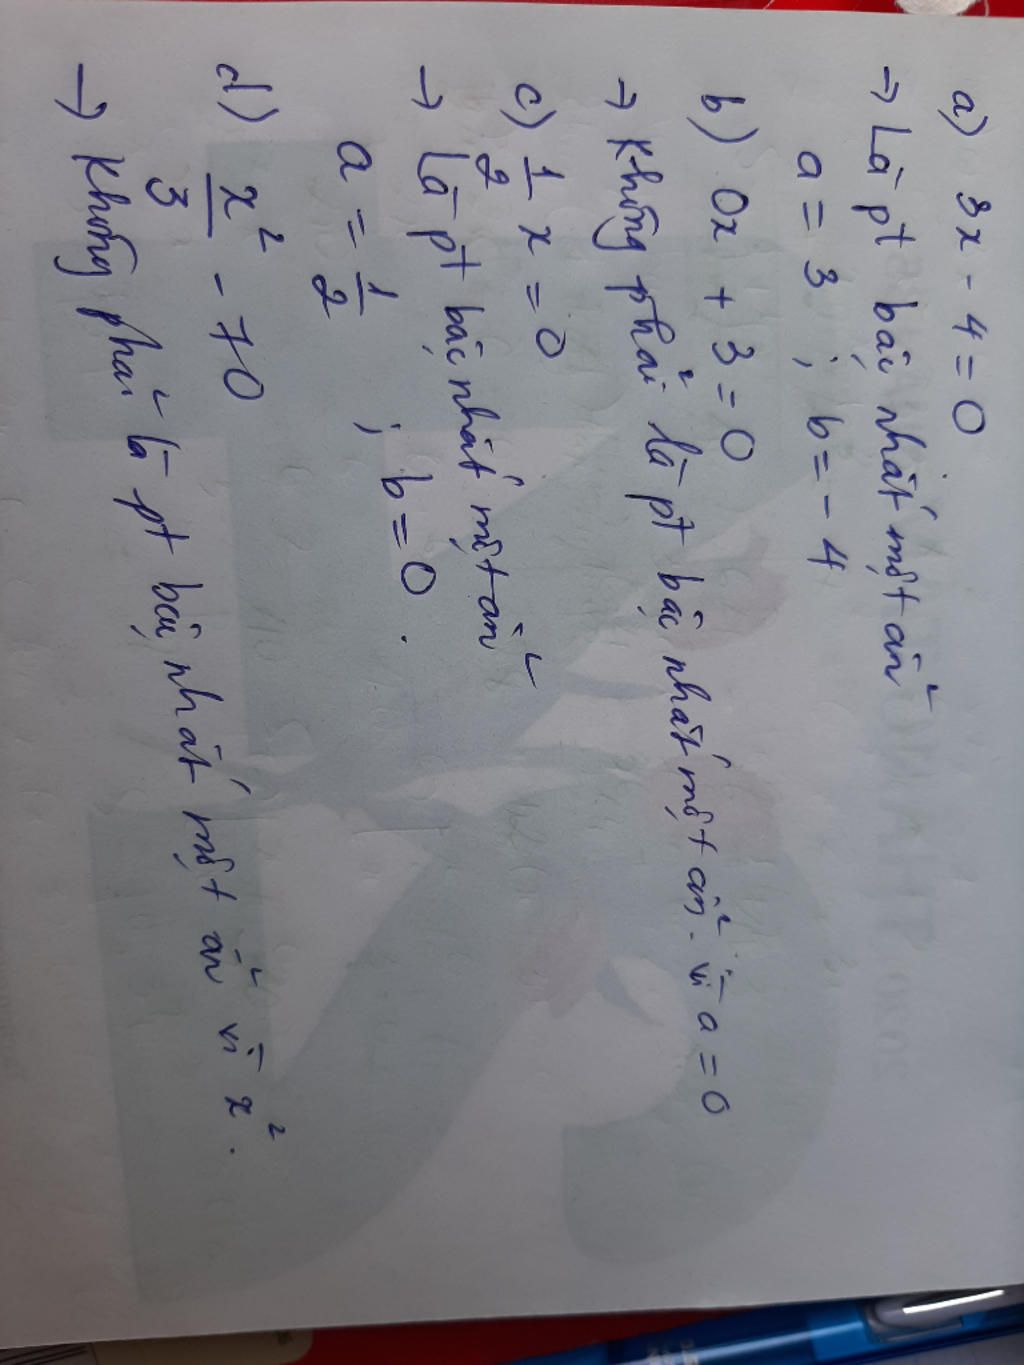 a) 3x - 4 = 0
→ Là pt bậc nhất một ẩn
a = 3 ; b = - 4
b) 0x + 3 = 0
→ Không phải là pt bậc nhất một ẩn. vì a = 0
c) 1/2 x = 0
→ Là pt bậc nhất một ẩn
a = 1/2 ; b = 0.
d) x²/3 - 70
→ Không phải là pt bậc nhất một ẩn vì x².